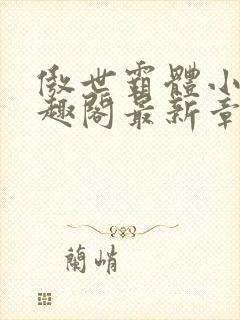 傲世霸體小
趣閣最新章
蘭峭